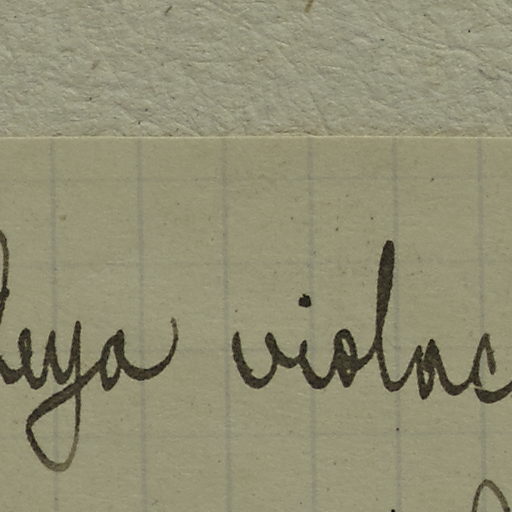 leya violac